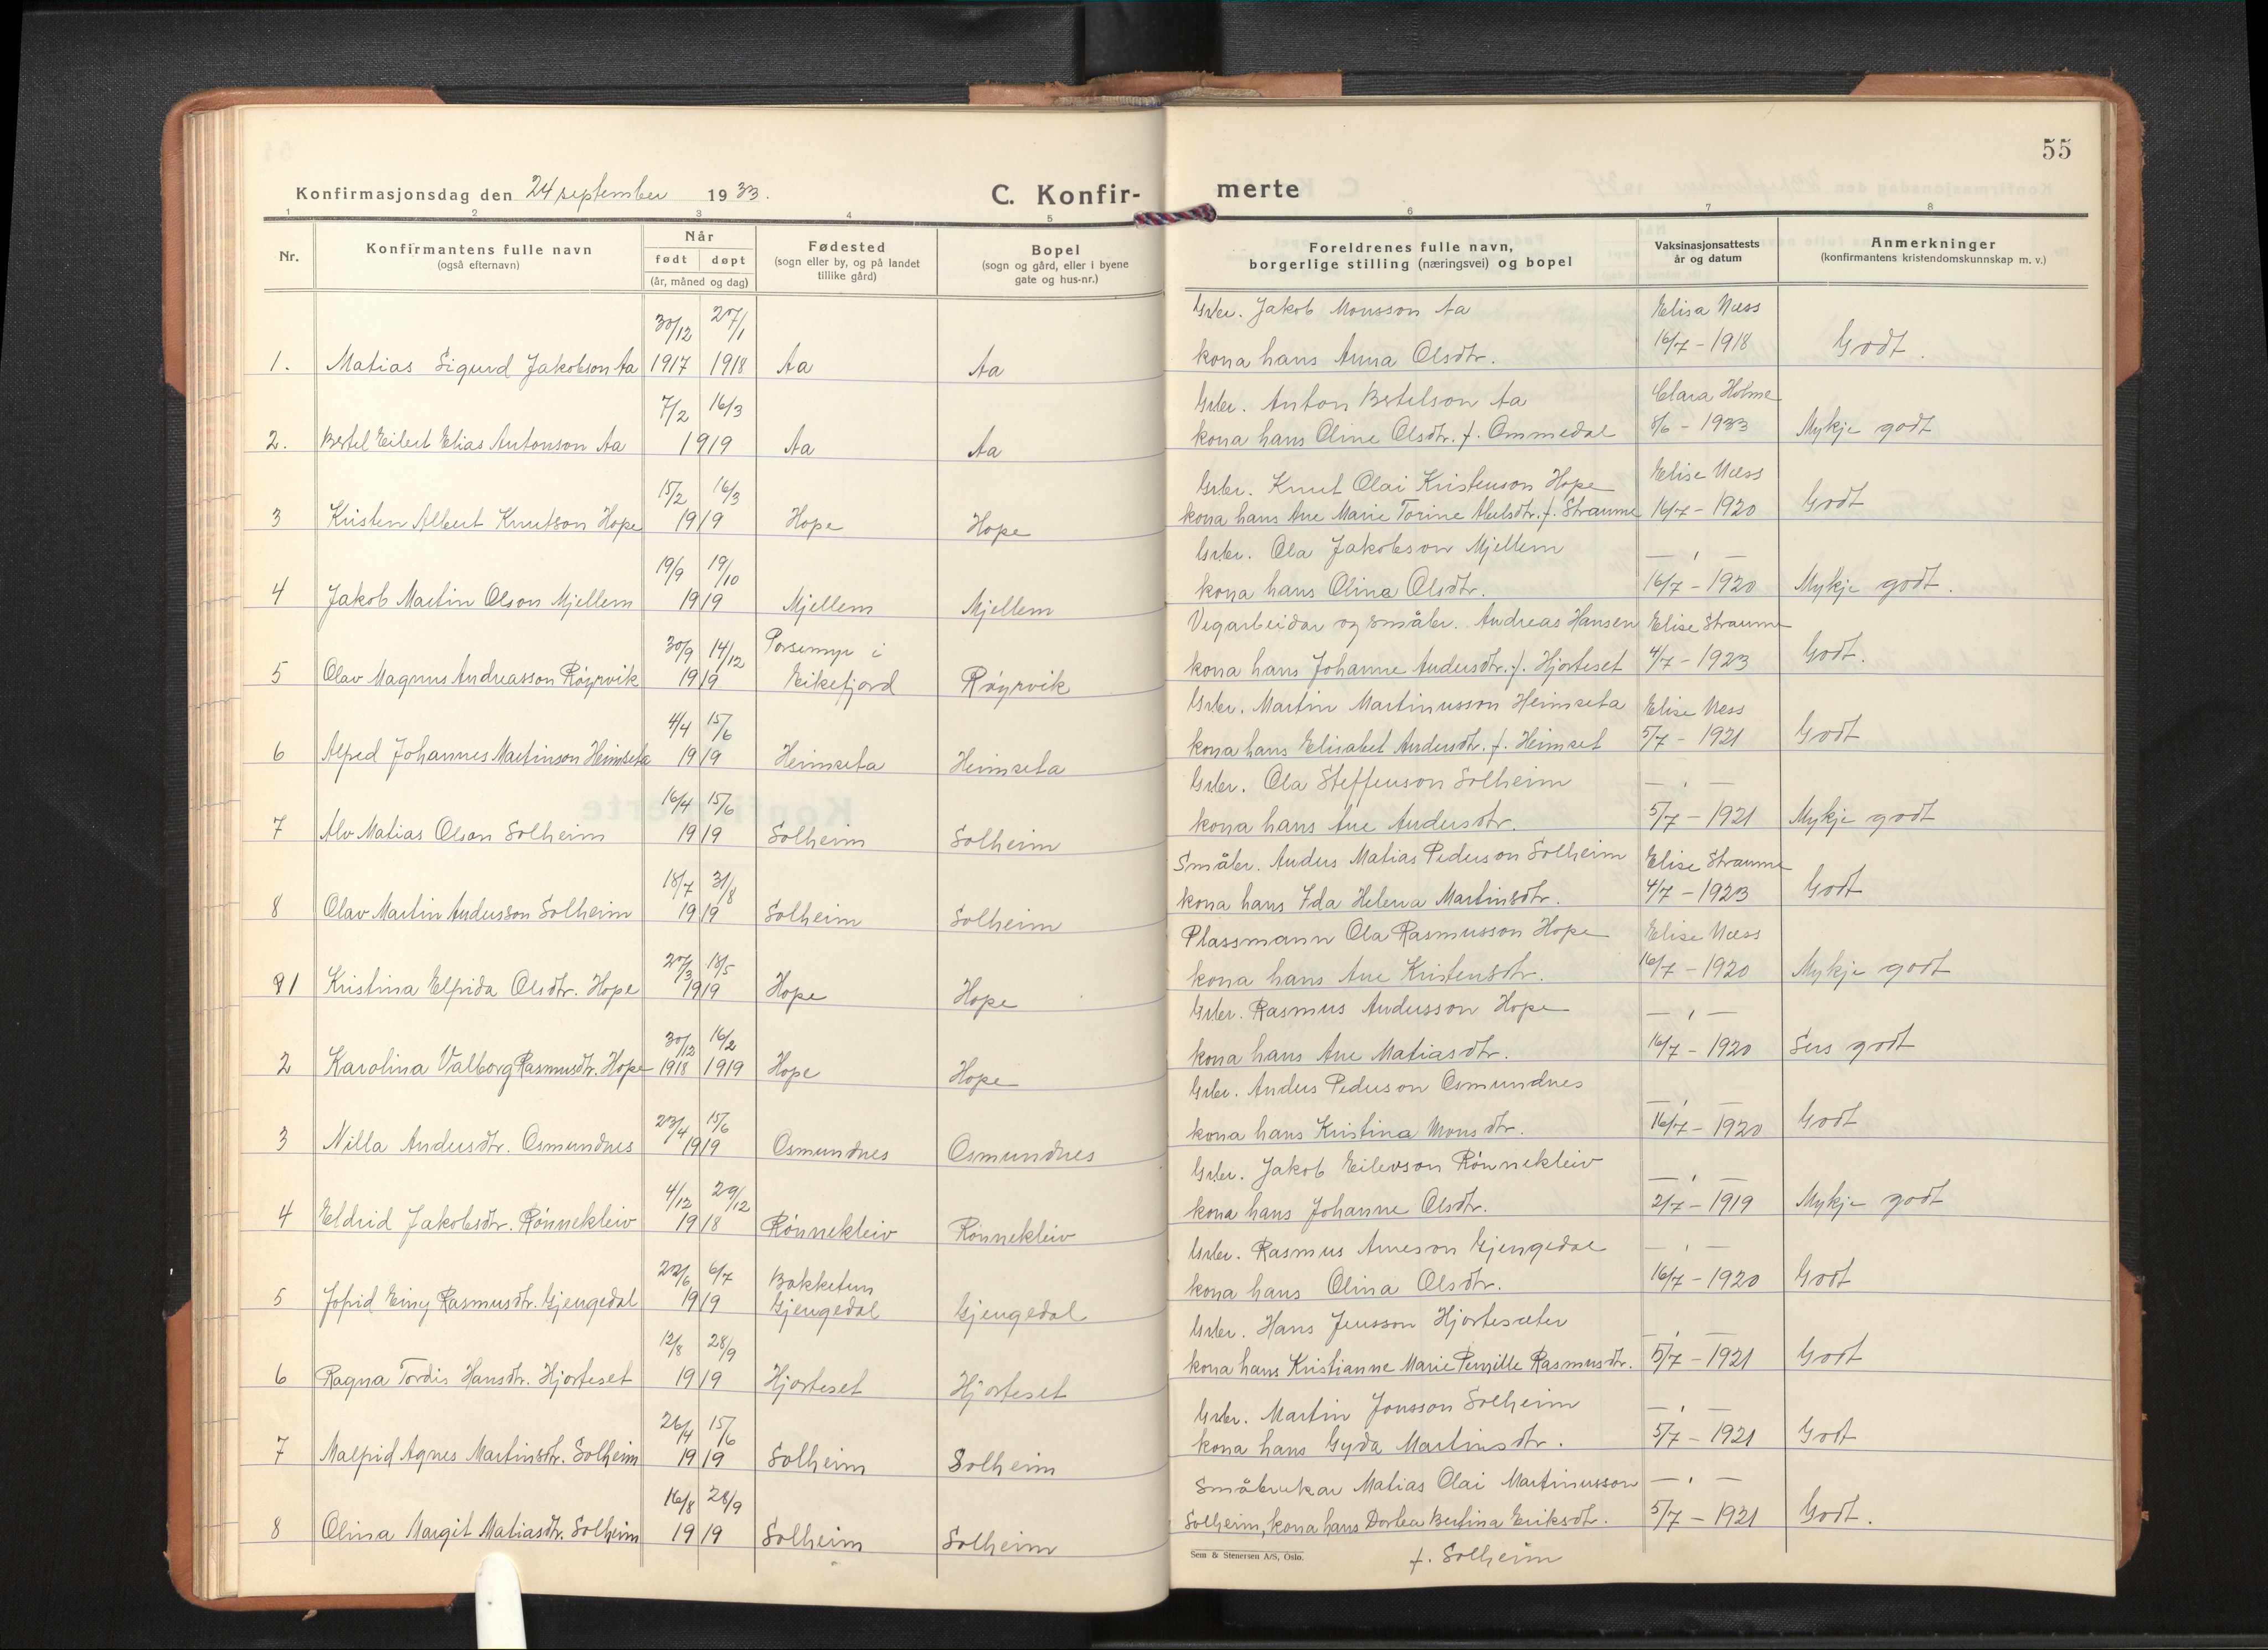 55
Konfirmasjonsdag den 24 september 1933.
C. Konfir-
merte
1 2 3 4 5 6 7 8
Nr.
Konfirmantens fulle navn
(også efternavn)
Når
født døpt
(år, måned og dag)
Fødested
(sogn eller by, og på landet
tillike gård)
Bopel
(sogn og gård, eller i byene
gate og hus-nr.)
Foreldrenes fulle navn,
borgerlige stilling (næringsvei) og bopel
Vaksinasjonsattests
år og datum
Anmerkninger
(konfirmantens kristendomskunnskap m. v.)
30/12 27/1 Gbr. Jakob Monsson Aa Elisa Næss
1. Matias Sigurd Jakobson Aa 1917 1918 Aa Aa kona hans Anna Olsdtr. 16/7 - 1918 Godt.
7/2 16/3 Gbr. Anton Bertelson Aa Clara Holme
2. Bertel Eilert Elias Antonson Aa 1919 Aa Aa kona hans Oline Olsdtr. f. Ommedal 8/6 - 1933 Mykje godt
15/2 16/3 Gbr. Knut Olai Kristenson Hope Elise Næss
3 Kristen Albert Knutson Hope 1919 Hope Hope kona hans Ane Marie Torine Abelsdtr. f. Straume 16/7 - 1920 Godt
19/9 19/10 Gbr. Ola Jakobson Mjellem — , —
4 Jakob Martin Olson Mjellem 1919 Mjellem Mjellem kona hans Olina Olsdtr. 16/7 - 1920 Mykje godt.
30/9 14/12 Porsemyr i Vegarbeidar og småbr. Andreas Hansen Elise Straume
5 Olav Magnus Andreasson Røyrvik 1919 Eikefjord Røyrvik kona hans Johanne Andersdtr. f. Hjorteset 4/7 - 1923 Godt.
4/4 15/6 Gbr. Martin Martinusson Heimseta Elise Ness
6 Alfred Johannes Martinson Heimseta 1919 Heimseta Heimseta kona hans Elisabet Andersdtr. f. Heimset 5/7 - 1921 Godt
16/4 15/6 Gbr. Ola Steffenson Solheim — , —
7 Alv Matias Olson Solheim 1919 Solheim Solheim kona hans Ane Andersdtr. 5/7 - 1921 Mykje godt
18/7 31/8 Småbr. Anders Matias Pederson Solheim Elise Straume
8 Olav Martin Andersson Solheim 1919 Solheim Solheim kona hans Ida Helena Martinsdtr. 4/7 - 1923 Godt
27/3 18/5 Plassmann Ola Rasmusson Hope Elise Næss
1 Kristina Elfrida Olsdtr. Hope 1919 Hope Hope kona hans Ane Kristensdtr. 16/7 - 1920 Mykje godt
30/12 16/2 Gbr. Rasmus Andersson Hope — , —
2 Karolina Valborg Rasmusdtr. Hope 1918 1919 Hope Hope kona hans Ane Matiasdtr. 16/7 - 1920 Sers godt
23/4 15/6 Gbr. Anders Pederson Osmundnes — , —
3 Nilla Andersdtr. Osmundnes 1919 Osmundnes Osmundnes kona hans Kristina Monsdtr. 16/7 - 1920 Godt
4/12 29/12 Gbr. Jakob Eilevson Rønnekleiv — , —
4 Eldrid Jakobsdtr. Rønnekleiv 1918 Rønnekleiv Rønnekleiv kona hans Johanne Olsdtr. 2/7 - 1919 Mykje godt
22/6 6/7 Bakketun Gbr. Rasmus Arneson Gjengedal — , —
5 Jofrid Einy Rasmusdtr. Gjengedal 1919 Gjengedal Gjengedal kona hans Olina Olsdtr. 16/7 - 1920 Godt
12/8 28/9 Gbr. Hans Jensson Hjorteseter — , —
6 Ragna Tordis Hansdtr. Hjorteset 1919 Hjorteset Hjorteset kona hans Kristianne Marie Pernille Rasmusdtr. 5/7 - 1921 Godt
26/4 15/6 Gbr. Martin Jonsson Solheim — , —
7 Malfrid Agnes Martinsdtr. Solheim 1919 Solheim Solheim kona hans Gyda Martinsdtr. 5/7 - 1921 Godt
16/8 28/9 Småbrukar Matias Olai Martinusson — , —
8 Olina Margit Matiasdtr. Solheim 1919 Solheim Solheim Solheim, kona hans Dortea Bertina Eriksdtr. 5/7 - 1921 Godt.
Sem & Stenersen A/S, Oslo.
f. Solheim